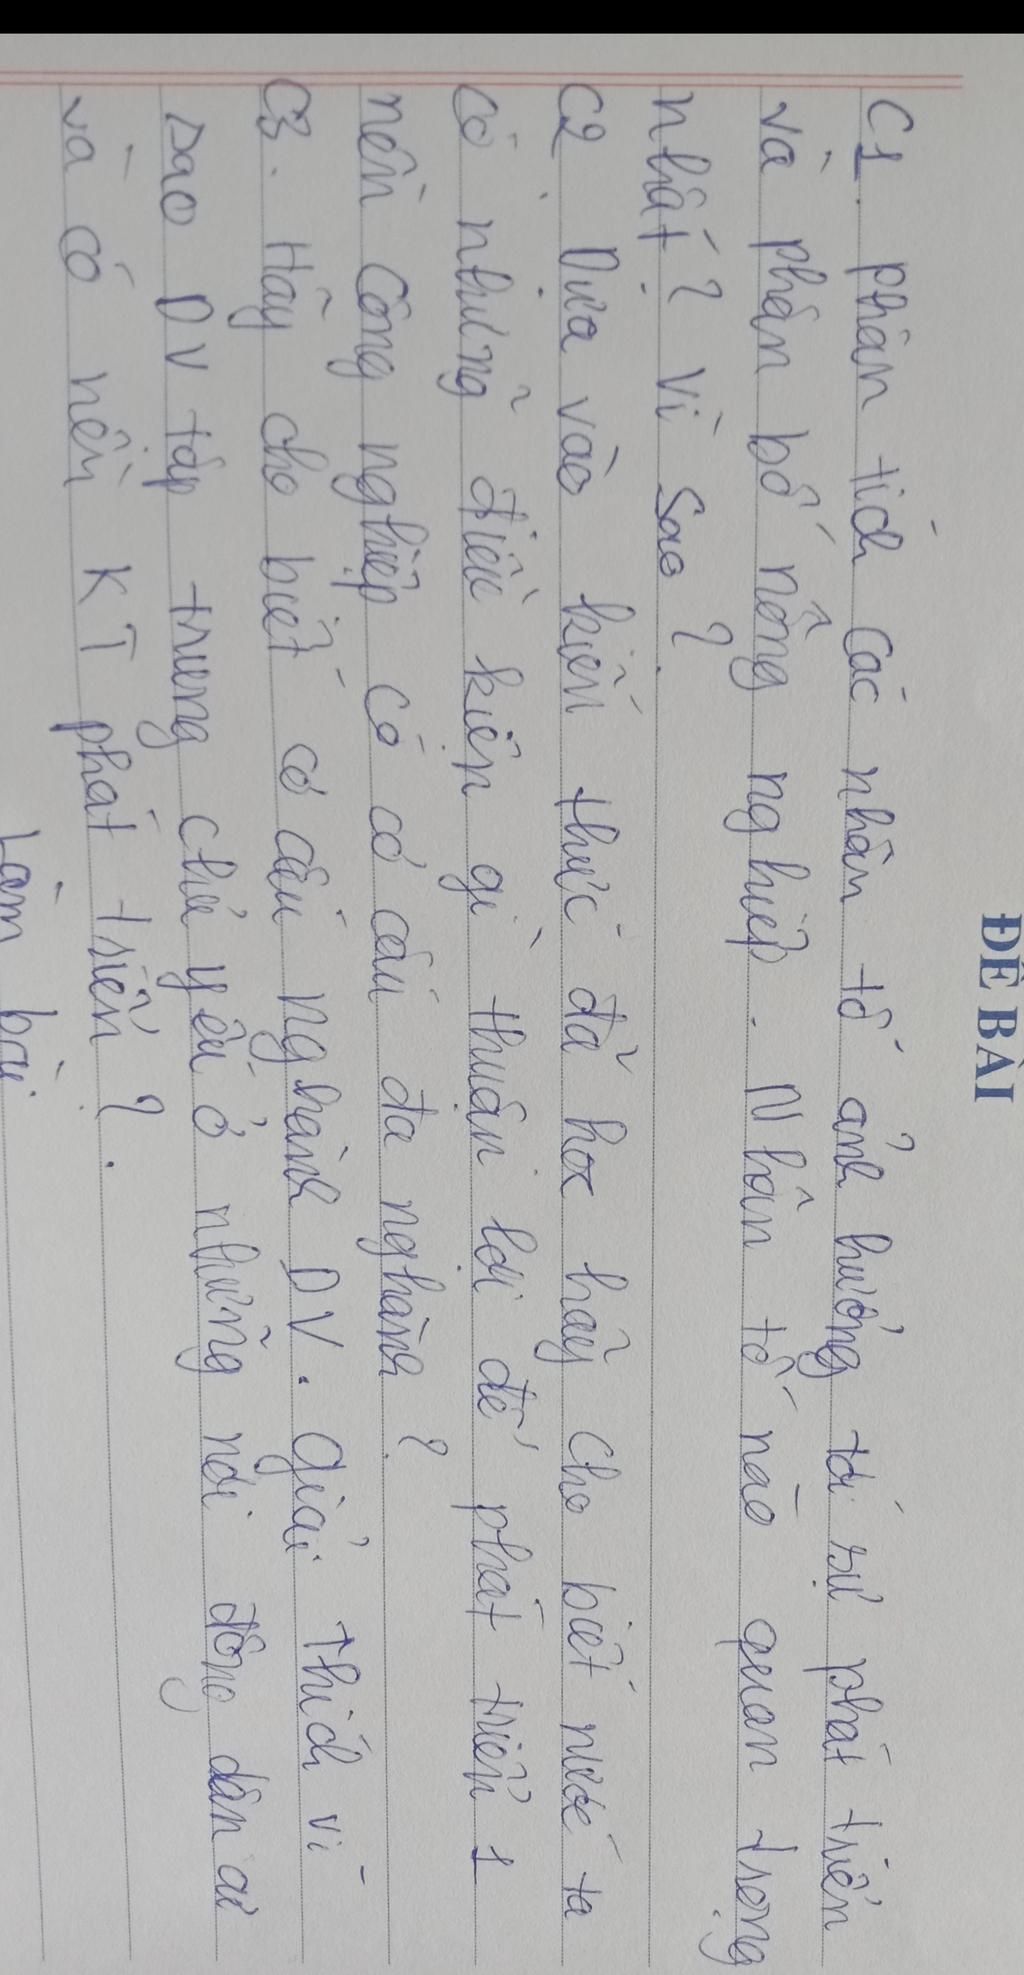 ĐỀ BÀI
C1. phân tích các nhân tố ảnh hưởng tới sự phát triển
và phân bố nông nghiệp. Nhân tố nào quan trọng
nhất? Vì sao?
C2 Dựa vào kiến thức đã học hãy cho biết nước ta
có những điều kiện gì thuận lợi để phát triển 1
nền công nghiệp có cơ cấu đa nghành?
C3. Hãy cho biết cơ cấu nghành DV. Giải thích vì
sao DV tập trung chủ yếu ở những nơi đông dân cư
và có nền KT phát triển?
Làm bài